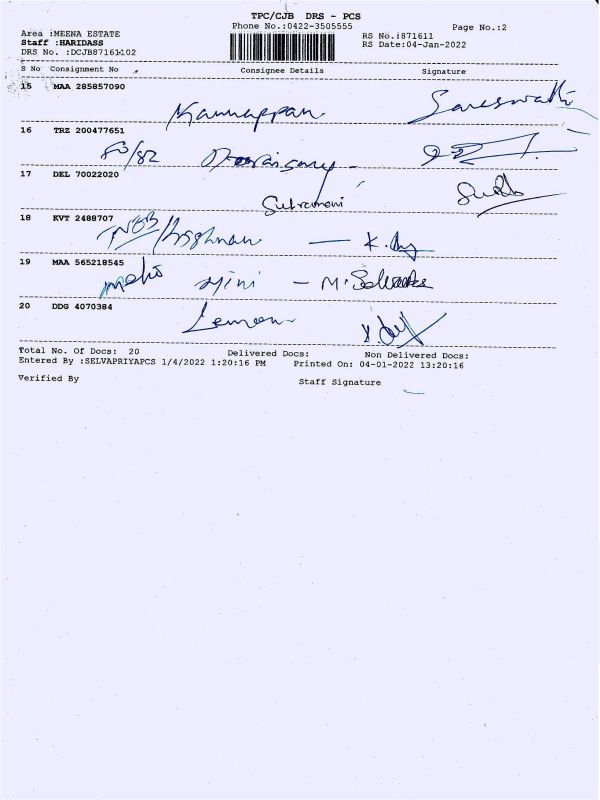 TPC/CJB DRS - PCS
Phone No.:0422-3505555 Page No.:2
Area :MEENA ESTATE RS No.:871611
Staff :HARIDASS RS Date:04-Jan-2022
DRS No. :DCJB87161102
S No Consignment No Consignee Details Signature
15 MAA 285857090
Kannappan Sareswathi
16 TRZ 200477651
80/82
17 DEL 70022020
Subramani
18 KVT 2488707
Krishnan
19 MAA 565218545
20 DDG 4070384
Lemon
Total No. Of Docs: 20 Delivered Docs: Non Delivered Docs:
Entered By :SELVAPRIYAPCS 1/4/2022 1:20:16 PM Printed On: 04-01-2022 13:20:16
Verified By Staff Signature